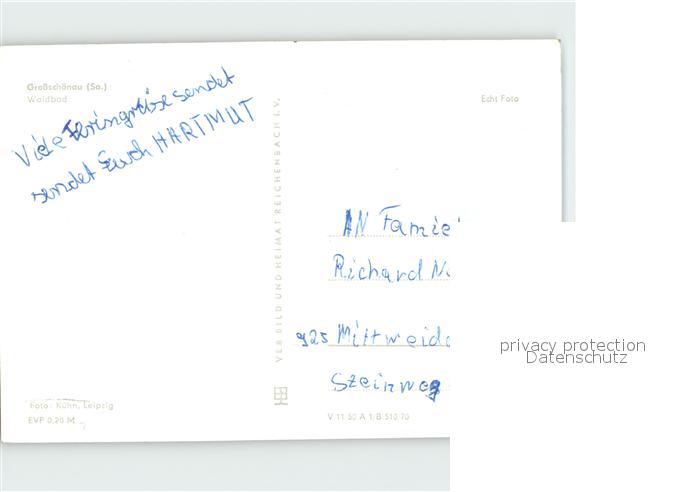 Großschönau (Sa.)
Waldbad
Echt Foto
Viele Feringrüse sendet
sendet Euch HARTMUT
VEB BILD UND HEIMAT REICHENBACH I. V.
AN Familie
Richard
925 Mittweida
Szeinweg
privacy protection
Datenschutz
Foto: Kühn, Leipzig
EVP 0,20 M
V 11 50 A 1/B 510 70